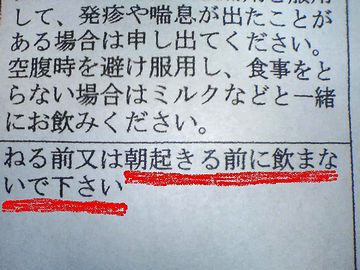 して、発疹や喘息が出たことが
ある場合は申し出てください。
空腹時を避け服用し、食事をと
らない場合はミルクなどと一緒
にお飲みください。
ねる前又は朝起きる前に飲まな
いで下さい